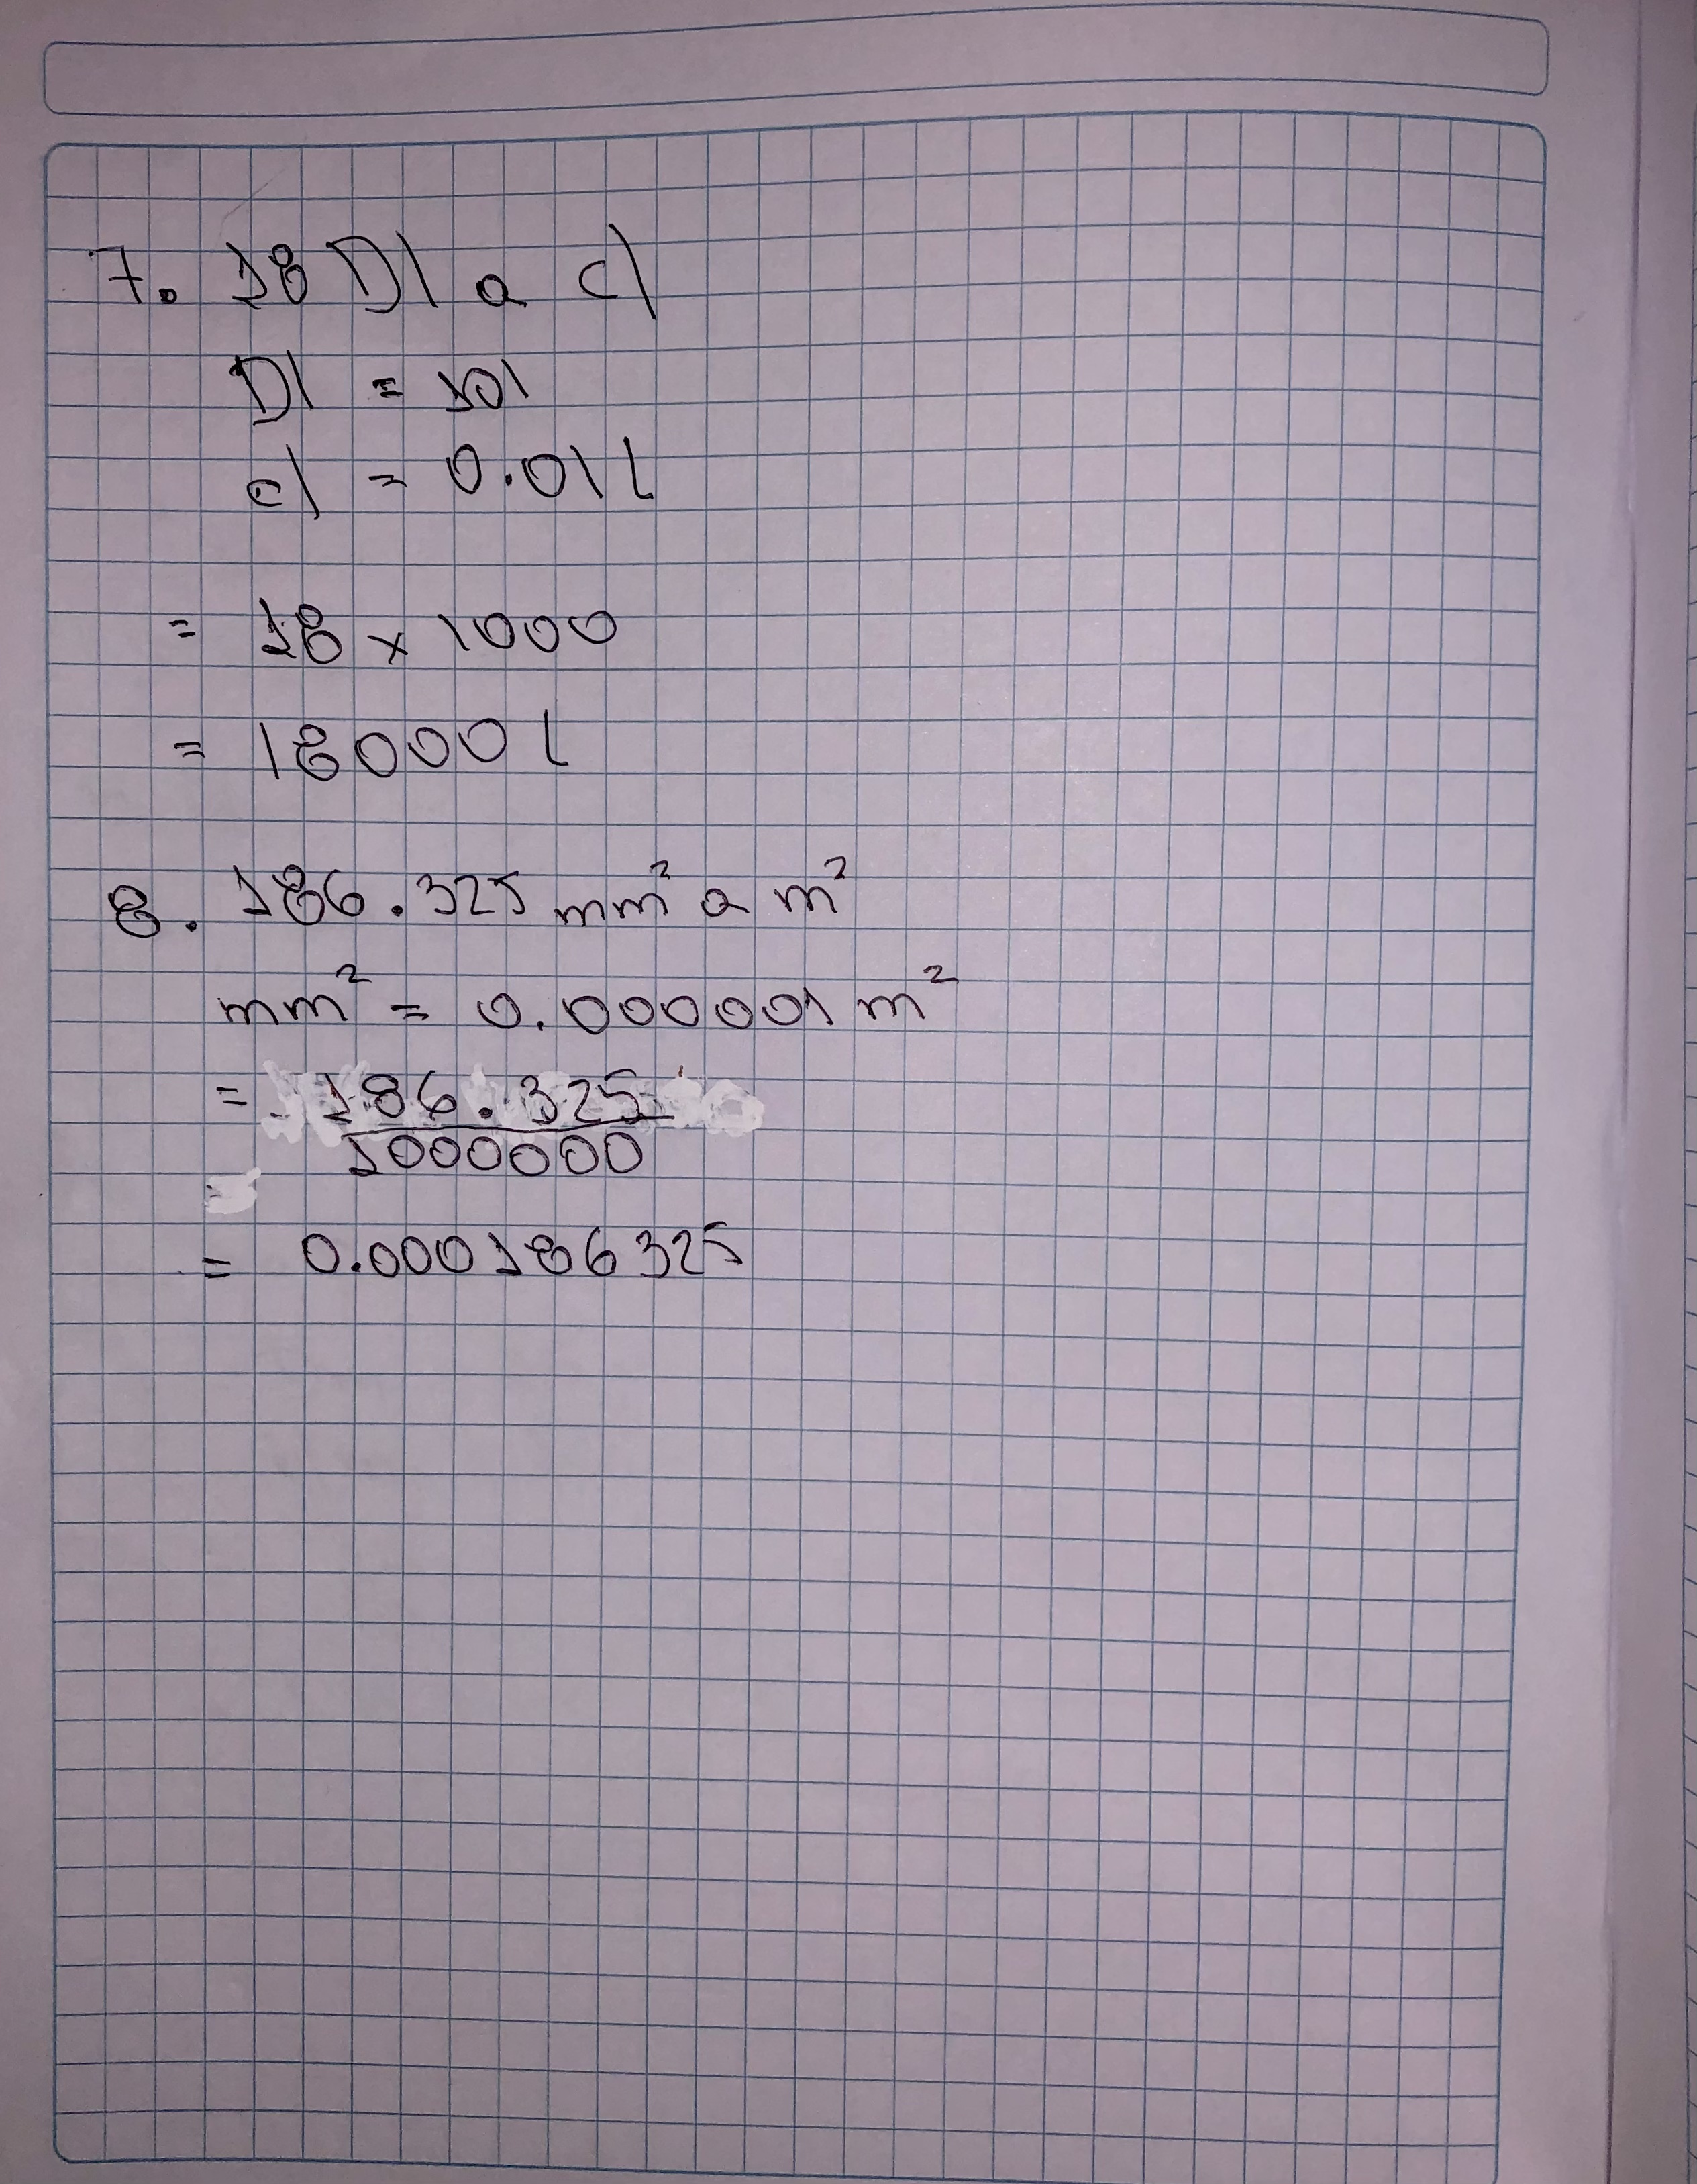 7. 18 Dl a cl
Dl = 10l
cl = 0.01 l
= 18 x 1000
= 18000 l
8. 186.325 mm² a m²
mm² = 0.000001 m²
= 186.325
1000000
= 0.000186325